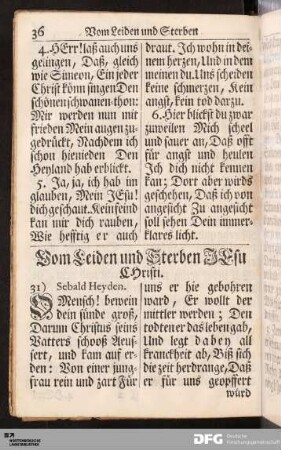 36 Vom Leiden und Sterben
4. HErr! laß auch uns
gelingen, Daß, gleich
wie Simeon, Ein jeder
Christ kön̄ singen Den
schönen schwanen-thon:
Mir werden nun mit
frieden Mein augen zu-
gedrückt, Nachdem ich
schon hienieden Den
Heyland hab erblickt.
5. Ja, ja, ich hab im
glauben, Mein JEsu!
dich geschaut. Kein feind
kan mir dich rauben,
Wie hefftig er auch
draut. Ich wohn in dei-
nem herzen, Und in dem
meinen du. Uns scheiden
keine schmerzen, Kein
angst, kein tod darzu.
6. Hier blickst du zwar
zuweilen Mich scheel
und sauer an, Daß offt
für angst und heulen
Ich dich nicht kennen
kan; Dort aber wirds
geschehen, Daß ich von
angesicht Zu angesicht
soll sehen Dein immer-
klares licht.
Vom Leiden und Sterben JEsu
CHristi.
31) Sebald Heyden.
O Mensch! bewein
dein sünde groß,
Darum Christus seins
Vatters schooß Aeus-
sert, und kam auf er-
den: Von einer jung-
frau rein und zart Für
uns er hie gebohren
ward, Er wollt der
mittler werden; Den
todten er das leben gab,
Und legt dabey all
kranckheit ab, Biß sich
die zeit herdrange, Daß
er für uns geopffert
würd
WÜRTTEMBERGISCHE
LANDESBIBLIOTHEK
DFG Deutsche
Forschungsgemeinschaft